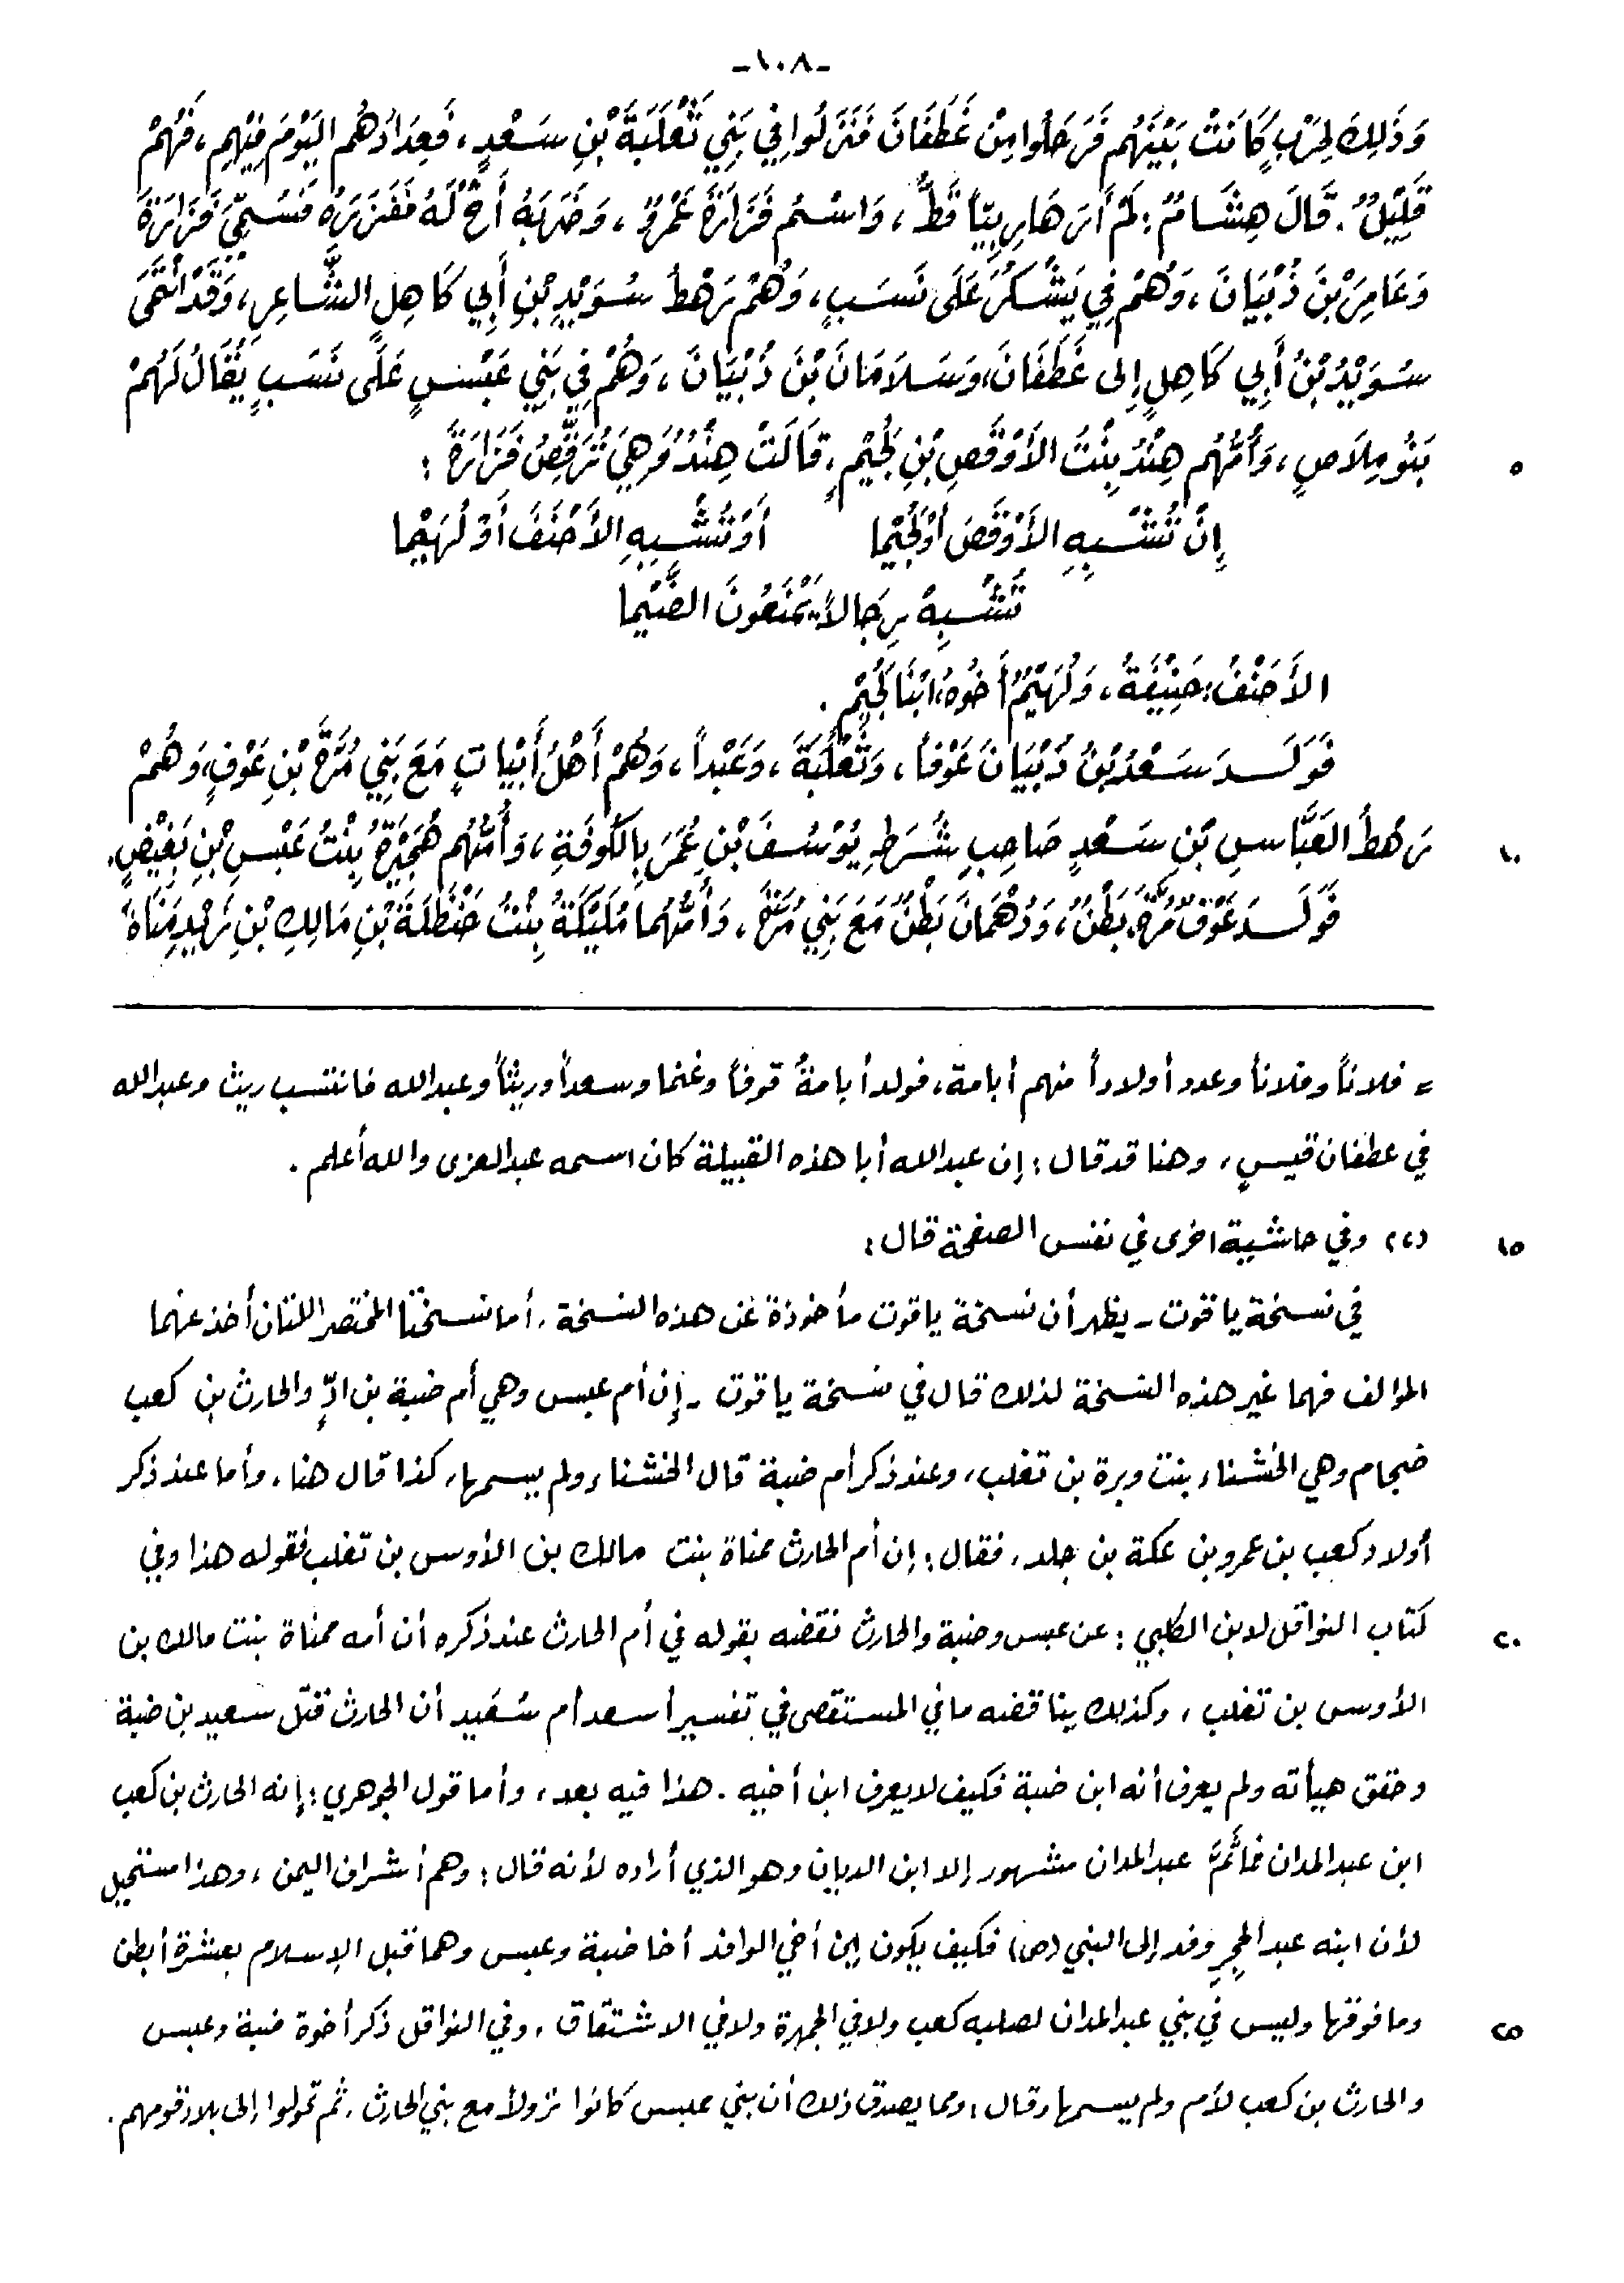 -١٠٨-
وَذَلِكَ لِحَرْبٍ كَانَتْ بَيْنَهُم فَرَحَلُوا مِنْ غَطَفَانَ فَنَزَلُوا فِي بَنِي ثَعْلَبَةَ بْنِ سَعْدٍ، فَعِدَادُهُم اليَوْمَ فِيْهِم، فَهُمْ
قَلِيْلٌ. قَالَ هِشَامٌ: لَمْ أَرَ هَارِبِيّاً قَطُّ، وَاسْمُ فَزَارَةَ عَمْرٌو، وَضَرَبَهُ أَخٌ لَهُ فَفَزَرَهُ فَسُمِّيَ فَزَارَةَ
وَعَامِرَ بْنَ ذُبْيَانَ، وَهُمْ فِي يَشْكُرَ عَلَى نَسَبٍ، وَهُمْ رَهْطُ سُوَيْدِ بْنِ أَبِي كَاهِلٍ الشَّاعِرِ، وَقَدْ انْتَمَى
سُوَيْدُ بْنُ أَبِي كَاهِلٍ إِلى غَطَفَانَ، وَسَلَامَانَ بْنَ ذُبْيَانَ، وَهُمْ فِي بَنِي عَبْسٍ عَلَى نَسَبٍ يُقَالُ لَهُمْ
٥ بَنُو مِلَاصٍ، وَأُمُّهُم هِنْدُ بِنْتُ الأَوْقَصِ بْنِ لُجَيْمٍ. قَالَتْ هِنْدُ وَهِيَ تُرَقِّصُ فَزَارَةَ:
إِنْ تُشْبِهِ الأَوْقَصَ أَوْ لُجَيْما أَوْ تُشْبِهِ الأَحْنَفَ أَوْ لُهَيْما
تُشْبِهْ رِجَالاً يَمْنَعُونَ الضَّيْما
الأَحْنَفُ: حَنِيْفَةُ، وَلُهَيْمٌ أَخُوهُ، ابْنَا لُجَيْمٍ.
فَوَلَدَ سَعْدُ بْنُ ذُبْيَانَ عَوْفاً، وَثَعْلَبَةَ، وَعَبْداً، وَهُمْ أَهْلُ أَبْيَاتٍ مَعَ بَنِي مُرَّةَ بْنِ عَوْفٍ، وَهُمْ
١٠ رَهْطُ العَبَّاسِ بْنِ سَعْدٍ صَاحِبِ شُرَطِ يُوْسُفَ بْنِ عُمَرَ بِالكُوفَةِ، وَأُمُّهُم هُجَيْرَةُ بِنْتُ عَبْسِ بْنِ بَغِيْضٍ.
فَوَلَدَ عَوْفٌ مُرَّةَ بَطْنٌ، وَدُهْمَانَ بَطْنٌ مَعَ بَنِي مُرَّةَ، وَأُمُّهُما مُلَيْكَةُ بِنْتُ حَنْظَلَةَ بْنِ مَالِكِ بْنِ زَيْدِ مَنَاةَ
= فلاناً وفلاناً وعدد أولاداً منهم أبامة، فولد أبامةُ قوفاً وغنما وسعداً وريثاً وعبدالله فانتسب ريث وعبدالله
في عطفان قيس، وهنا قد قال: إن عبدالله أبا هذه القبيلة كان اسمه عبدالعزى والله أعلم.
١٥ (٢) وفي حاشية اخرى في نفس الصفحة قال:
في نسخة ياقوت - يظهر أن نسخة ياقوت مأخوذة عن هذه النسخة، أما نسختا المختصر اللتان أخذ عنهما
المؤالف فهما غير هذه النسخة لذلك قال في نسخة ياقوت - إن أم عبس وهي أم ضبة بن ادٍّ والحارث بن كعب
ضجام وهي الخشناء بنت وبرة بن تغلب، وعند ذكر أم ضبة قال الخشناء ولم يسمها، كذا قال هنا، وأما عند ذكر
أولاد كعب بن عمرو بن عكة بن جلد، فقال: إن أم الحارث ممناة بنت مالك بن الأوس بن تغلب فقوله هذا وفي
٢٠ كتاب النواقل لابن الكلبي: عن عبس وضبة والحارث نقضه بقوله في أم الحارث عند ذكره أن أمه ممناة بنت مالك بن
الأوس بن تغلب، وكذلك يناقضه ما في المستقصى في تفسير أسعد أم سُعَيد أن الحارث قتل سعيد بن ضبة
وحقق هيأته ولم يعرف أنه ابن ضبة فكيف لا يعرف ابن أخيه. هذا فيه بعد، وأما قول الجوهري: إنه الحارث بن كعب
ابن عبدالمدان فما ثَمَّ عبدالمدان مشهور إلا ابن الديان وهو الذي أراده لأنه قال: وهم أشراف اليمن، وهذا مستحيل
لأن ابنه عبد الحِجر وفد إلى النبي (ص) فكيف يكون ابن أخي الوافد أخا ضبة وعبس وهما قبل الإسلام بعشرة أبطن
٢٥ وما فوقها وليس في بني عبدالمدان لصلبه كعب ولا في الجمهرة ولا في الاشتقاق، وفي النواقل ذكر أخوة ضبة وعبس
والحارث بن كعب لأم ولم يسمها وقال: ومما يصدق ذلك أن بني عبس كانوا نزولاً مع بني الحارث، ثم تحولوا إلى بلاد قومهم.